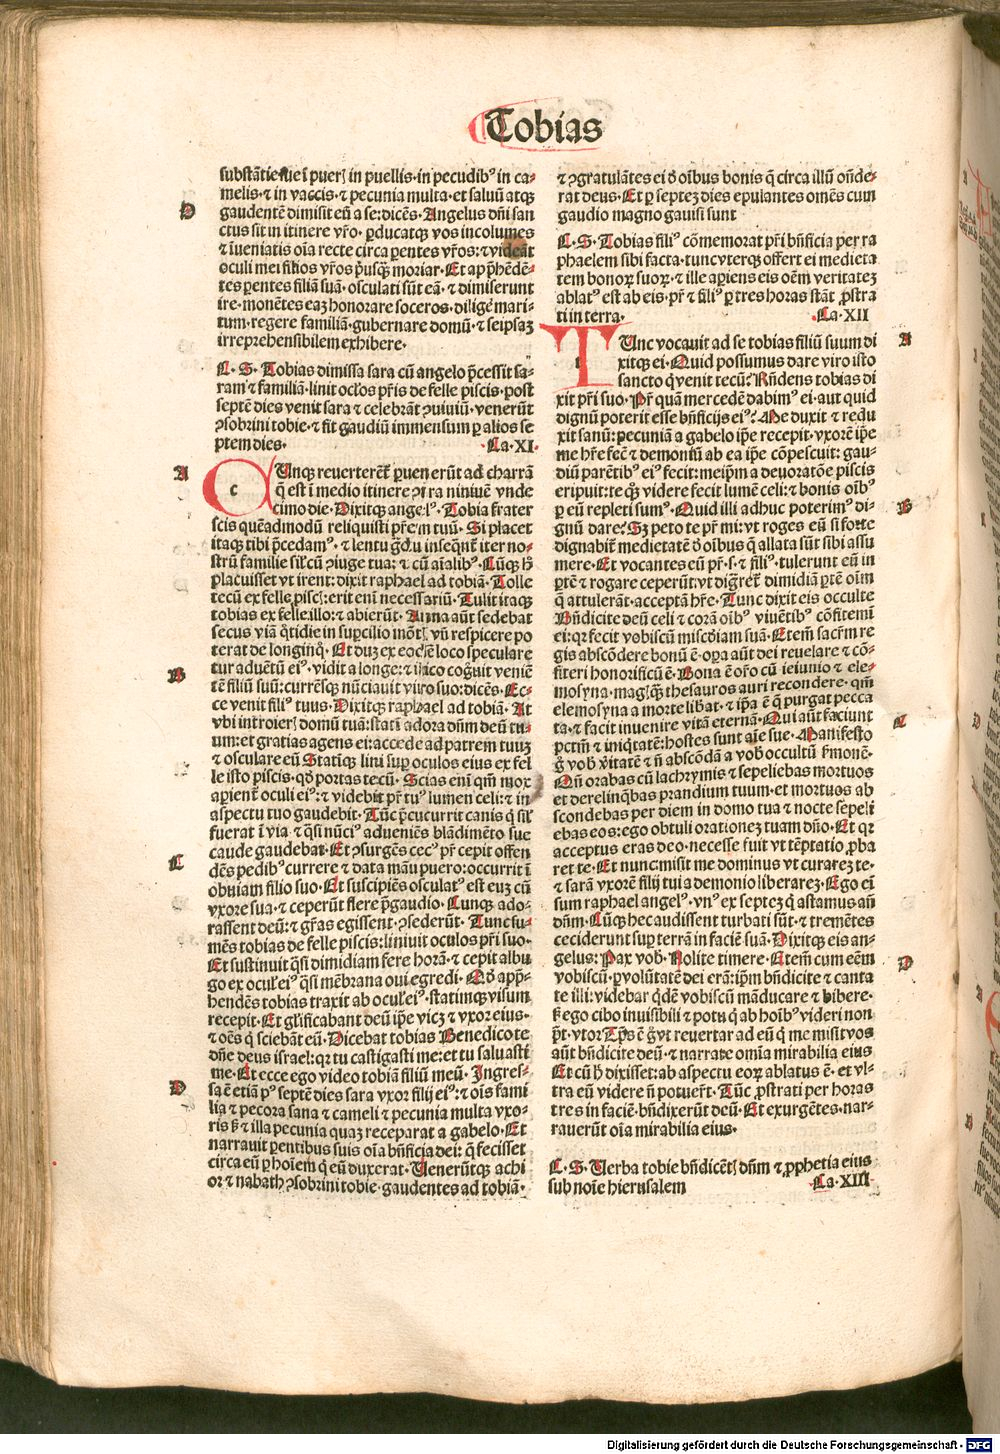 Tobias
substātie sue ī puerꝭ in puellis·in pecudibꝰ in ca-
melis·⁊ in vaccis·⁊ pecunia multa·et saluū atqꝫ
D
gaudentē dimisit eū a se:dicēs·Angelus dn̄i san
ctus sit in itinere vr̄o·ꝑducatqꝫ vos incolumes
⁊ īueniatis oīa recte circa ꝑentes vr̄os:⁊ videāt
oculi mei filios vr̄os p̄usqꝫ moriar·Et app̄hēdē-
tes ꝑentes filiā suā·osculati sūt eā·⁊ dimiserunt
ire·monētes eaꝫ honorare soceros·dilige mari-
tum·regere familiā·gubernare domū·⁊ seipsaꝫ
irreprehensibilem exhibere·
C·S·Tobias dimissa sara cū angelo p̄cessit sa-
ram ⁊ familiā·linit oclos pr̄is de felle piscis·post
septē dies venit sara ⁊ celebrāt ꝯuiuiū·venerūt
ꝯsobrini tobie·⁊ fit gaudiū immensum ꝑ alios se
ptem dies· Ca·XI·
A
c
Unqꝫ reuerterēt ꝑuenerūt ad charrā
q̄ est ī medio itinere ꝯtra niniuē vnde
cimo die·Dixitqꝫ angelꝰ·Tobia frater
scis quēadmodū reliquisti pr̄em tuū·Si placet
itaqꝫ tibi p̄cedamꝰ·⁊ lentu gdu insequēt iter no-
strū familie sil'cū ꝯiuge tua:⁊ cū aīalibꝰ·Cūqꝫ hͦ
placuisset vt irent:dixit raphael ad tobiā·Tolle
tecū ex felle piscꝭ:erit eni necessariū·Tulit itaqꝫ
tobias ex felle illo:⁊ abierūt·Anna aūt sedebat
secus viā q̄tidie in suꝑcilio mōtꝭ vn̄ respicere po
terat de longinq̊·Et duꝫ ex eodē loco speculare
B
tur aduētū eiꝰ·vidit a longe:⁊ ilico cogͦuit veniē
tē filiū suū:currēsqꝫ nūciauit viro suo:dicēs·Ec-
ce venit filiꝰ tuus·Dixitqꝫ raphael ad tobiā·At
vbi introierꝭ domū tuā:statī adora dn̄m deū tu-
um:et gratias agens ei:accede ad patrem tuuꝫ
⁊ osculare eū Statīqꝫ lini suꝑ oculos eius ex fel
le isto piscis·qd̓ portas tecū·Scias enī qm̄ mox
aꝑient̄ oculi eiꝰ:⁊ videbit pr̄ tuꝰ lumen celi:⁊ in
aspectu tuo gaudebit·Tūc p̄cucurrit canis q̄ sil'
fuerat ī via·⁊ q̄si nūciꝰ adueniēs blādimēto sue
caude gaudebat·Et ꝯsurgēs cecꝰ pr̄ cepit offen
C
dēs pedibꝰ currere ⁊ data māu puero:occurrit ī
obuiam filio suo·Et suscipiēs osculatꝰ est euꝫ cū
vxore sua·⁊ ceperūt flere p̄gaudio·Cunqꝫ ado-
rassent deū:⁊ gr̄as egissent·ꝯsederūt·Tunc su-
mēs tobias de felle piscis:liniuit oculos pr̄i suo·
Et sustinuit q̄si dimidiam fere horā·⁊ cepit albu
go ex oculꝭ eiꝰ q̄si mēbrana oui egredi·Qd̓ app̄-
hendēs tobias traxit ab oculꝭ eiꝰ·statimqꝫ visum
recepit·Et glificabant deū ip̄e vicꝫ ⁊ vxor eius·
⁊ oēs q̄ sciebāt eū·Dicebat tobias Benedico te
dn̄e deus israel:qꝛ tu castigasti me:et tu saluasti
me·Et ecce ego video tobiā filiū meū·Ingres-
D
sa ē etiā pꝰ septē dies sara vxor filij eiꝰ:⁊ oīs fami
lia ⁊ pecora sana ⁊ cameli ⁊ pecunia multa vxo-
ris ꝭ ⁊ illa pecunia quaꝫ receparat a gabelo·Et
narrauit ꝑentibus suis oīa bn̄ficia dei:q̄ fecisset
circa eū ꝑ hoīem q̄ eū duxerat·Uenerūtqꝫ achi
or ⁊ nabath ꝯsobrini tobie·gaudentes ad tobiā·
⁊ ꝯgratulātes ei d̓ oībus bonis q̄ circa illū on̄de-
rat deus·Et ꝑ septeꝫ dies epulantes omēs cum
gaudio magno gauisi sunt
C·S·Tobias filiꝰ cōmemorat pr̄i bn̄ficia per ra
phaelem sibi facta·tunc vterqꝫ offert ei medieta
tem bonoꝝ suoꝝ·⁊ ille aꝑiens eis oēm veritateꝫ
ablatꝰ est ab eis·pr̄ ⁊ filiꝰ ꝑ tres horas stāt ꝓstra
ti in terra· Ca·XII
A
T
t
Unc vocauit ad se tobias filiū suum di
xitqꝫ ei·Quid possumus dare viro isto
sancto q̄ venit tecū? Rn̄dens tobias di
xit pr̄i suo·Pr̄ quā mercedē dabimꝰ ei·aut quid
dignū poterit esse bn̄ficijs eiꝰ? Me duxit ⁊ redu
xit sanū:pecuniā a gabelo ip̄e recepit·vxorē ip̄e
me hr̄e fecit ⁊ demoniū ab ea ip̄e cōpescuit: gau-
diū parētibꝰ eiꝰ fecit:meip̄m a deuoratōe piscis
eripuit:te qꝫ videre fecit lumē celi:⁊ bonis oībꝰ
B
ꝑ eū repleti sumꝰ·Quid illi ad huc poterimꝰ di-
gnū dare? Sꝫ peto te pr̄ mi:vt roges eū si forte
dignabit̄ medietatē d̓ oībus q̄ allata sūt sibi assu
mere·Et vocantes eū pr̄·s·⁊ filiꝰ·tulerunt eū in
ꝑtē ⁊ rogare ceperūt:vt digret̄ dimidiā ꝑtē oīm
q̄ attulerāt·acceptā hr̄e·Tunc dixit eis occulte
Bn̄dicite deū celi ⁊ corā oībꝰ viuētibꝰ cōfitemī
ei:qꝛ fecit vobiscū miscdiam suā·Etem̄ sacr̄m re
gis abscōdere bonū ē·oꝑa aūt dei reuelare ⁊ cō-
fiteri honorificū ē·Bona ē or̄o cū ieiunio ⁊ ele-
mosyna·magꝭ qꝫ thesauros auri recondere·qm̄
elemosyna a morte libat·⁊ ip̄a ē q̄ purgat pecca
C
ta·⁊ facit inuenire vitā eternā·Qui aūt faciunt
pctm̄ ⁊ iniqtatē:hostes sunt aīe sue·Manifesto
g̊ vob̄ v̄itatē ⁊ n̄ abscōdā a vob̄ occultū ẜmonē·
Qn̄ orabas cū lachrymis ⁊ sepeliebas mortuos
et derelinq̄bas prandium tuum·et mortuos ab
scondebas per diem in domo tua ⁊ nocte sepeli
ebas eos:ego obtuli orationeꝫ tuam dn̄o·Et qꝛ
acceptus eras deo·necesse fuit vt tēptatio ꝓba
ret te·Et nunc misit me dominus vt curareꝫ te·
⁊ sarā vxorē filij tui a demonio liberareꝫ·Ego eī
sum raphael angelꝰ·vnꝰ ex septeꝫ q̄ astamus an̄
dn̄m·Cūqꝫ hec audissent turbati sūt·⁊ tremētes
ceciderunt suꝑ terrā in faciē suā·Dixitqꝫ eis an-
D
gelus:Pax vob̄·Nolite timere·Etem̄ cum eēm
vobiscū·ꝑ volūtatē dei erā:ip̄m bn̄dicite ⁊ canta
te illi:videbar q̄dē vobiscū māducare ⁊ bibere·
ꝭ ego cibo inuisibili ⁊ potu q̄ ab hoībꝰ videri non
pt̄·vtor Tp̄s ē g̊ vt reuertar ad eū q̄ me misit vos
aūt bn̄dicite deū·⁊ narrate omīa mirabilia eius
Et cū h̄ dixisset:ab aspectu eoꝝ ablatus ē·et vl-
tra eū videre n̄ potuer̄t·Tūc ꝓstrati per horas
tres in faciē·bn̄dixerūt deū·Et exurgētes·nar-
rauerūt oīa mirabilia eius·
C·S·Uerba tobie bn̄dicētꝭ dn̄m ⁊ ꝓphetia eius
sub noīe hierusalem ·Ca·XIII·
Digitalisierung gefördert durch die Deutsche Forschungsgemeinschaft - DFG